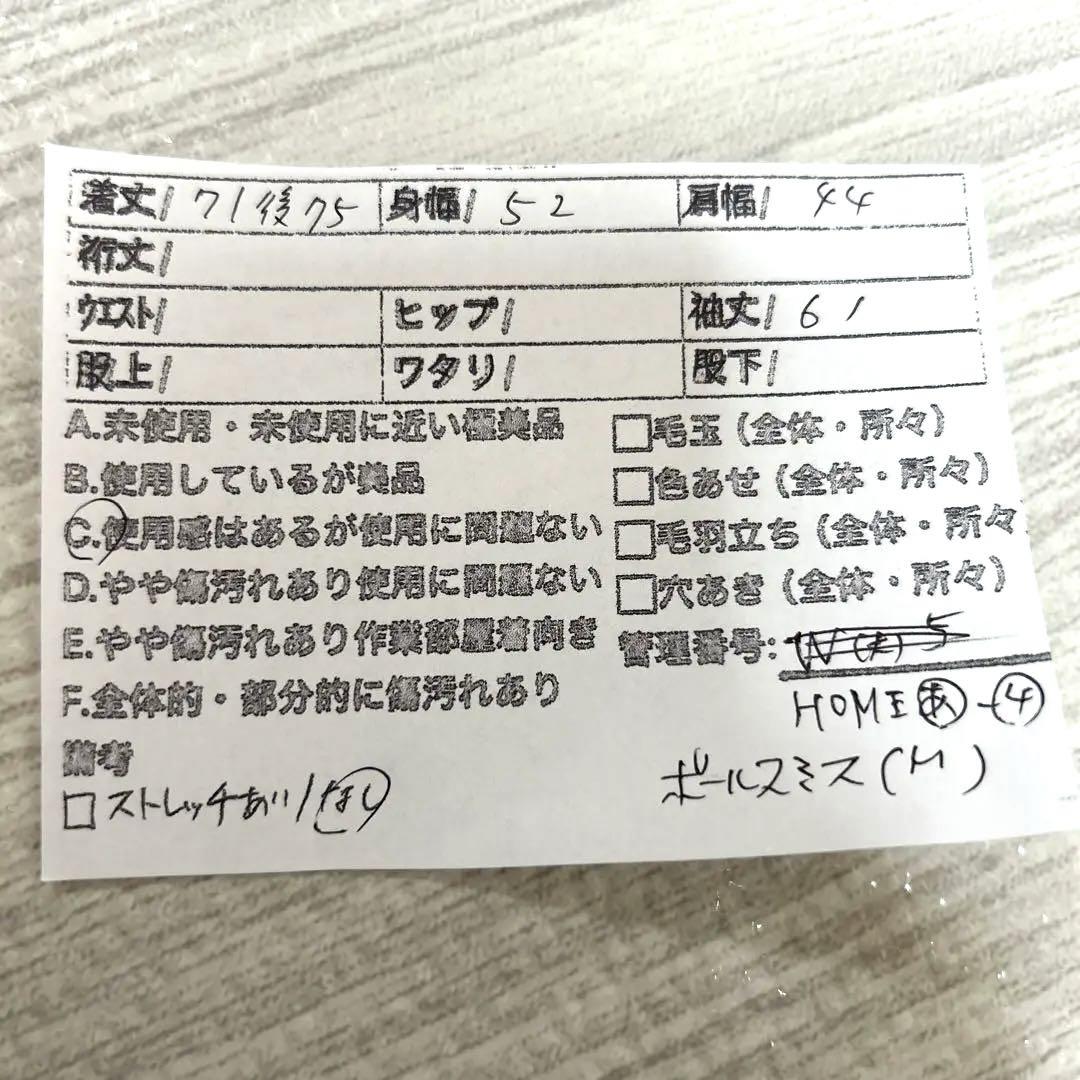 着丈/ 71後75 身幅/ 52 肩幅/ 44
裄丈/
ウエスト/ ヒップ/ 袖丈/ 61
股上/ ワタリ/ 股下/
A.未使用・未使用に近い極美品
□毛玉（全体・所々）
B.使用しているが美品
□色あせ（全体・所々）
C.使用感はあるが使用に問題ない
□毛羽立ち（全体・所々
D.やや傷汚れあり使用に問題ない
□穴あき（全体・所々）
E.やや傷汚れあり作業部屋着向き
管理番号:
F.全体的・部分的に傷汚れあり
HOMEあ-④
備考
ポールスミス(M)
□ストレッチあり/なし